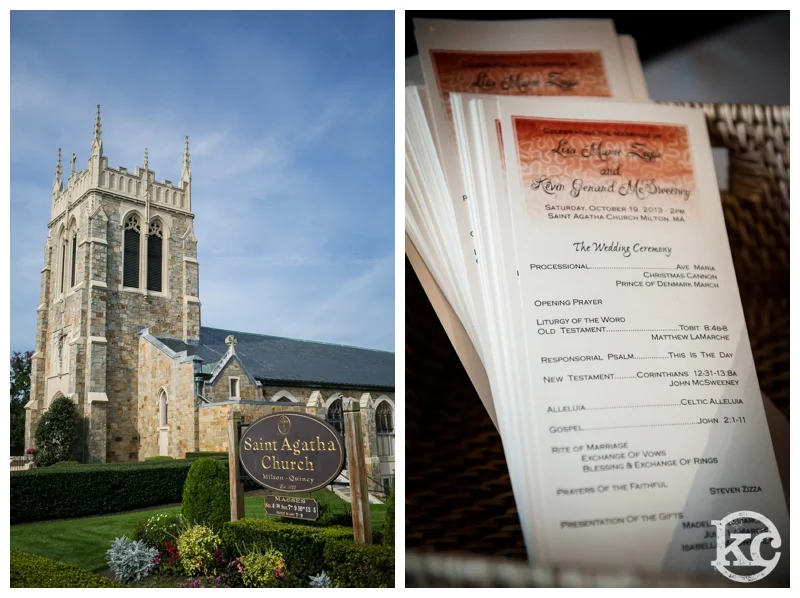 Saint Agatha
Church
Milton - Quincy
Est. 1922
Masses
Lisa Marie Zizza
Celebrating the Marriage of
Lisa Marie Zizza
and
Kevin Gerard McSweeney
Saturday, October 19, 2013 · 2pm
Saint Agatha Church Milton MA
The Wedding Ceremony
Processional..............................Ave Maria
Christmas Cannon
Prince of Denmark March
Opening Prayer
Liturgy of the Word
Old Testament..............................Tobit 8:4b-8
Matthew LaMarche
Responsorial Psalm...............This Is The Day
New Testament..........Corinthians 12-31-13:8a
John McSweeney
Alleluia..............................Celtic Alleluia
Gospel..............................John 2:1-11
Rite of Marriage
Exchange of Vows
Blessing & Exchange of Rings
Prayers of the Faithful
Steven Zizza
Presentation of the Gifts
kc